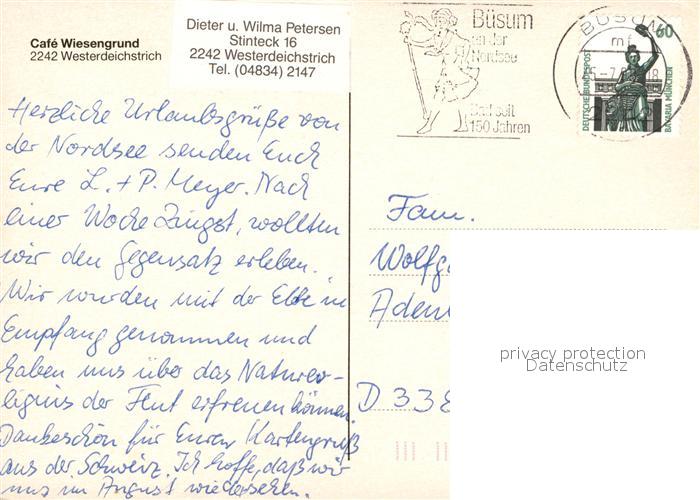 Café Wiesengrund
2242 Westerdeichstrich
Dieter u. Wilma Petersen
Stinteck 16
2242 Westerdeichstrich
Tel. (04834) 2147
Büsum
an der
Nordsee
Bad seit
150 Jahren
BÜSUM
mf
-7.
18
60
DEUTSCHE BUNDESPOST
BAVARIA MÜNCHEN
Herzliche Urlaubsgrüße von
der Nordsee senden Euch
Eure L. + P. Meyer. Nach
einer Woche Zingst, wollten
wir den Gegensatz erleben.
Wir wurden mit der Ebbe in
Empfang genommen und
haben uns über das Naturer-
eignis der Flut erfreuen können.
Dankeschön für Euren Kartengruß
aus der Schweiz. Ich hoffe, daß wir
uns im August wiedersehen.
Fam.
Wolfg
Aden
D 338
privacy protection
Datenschutz